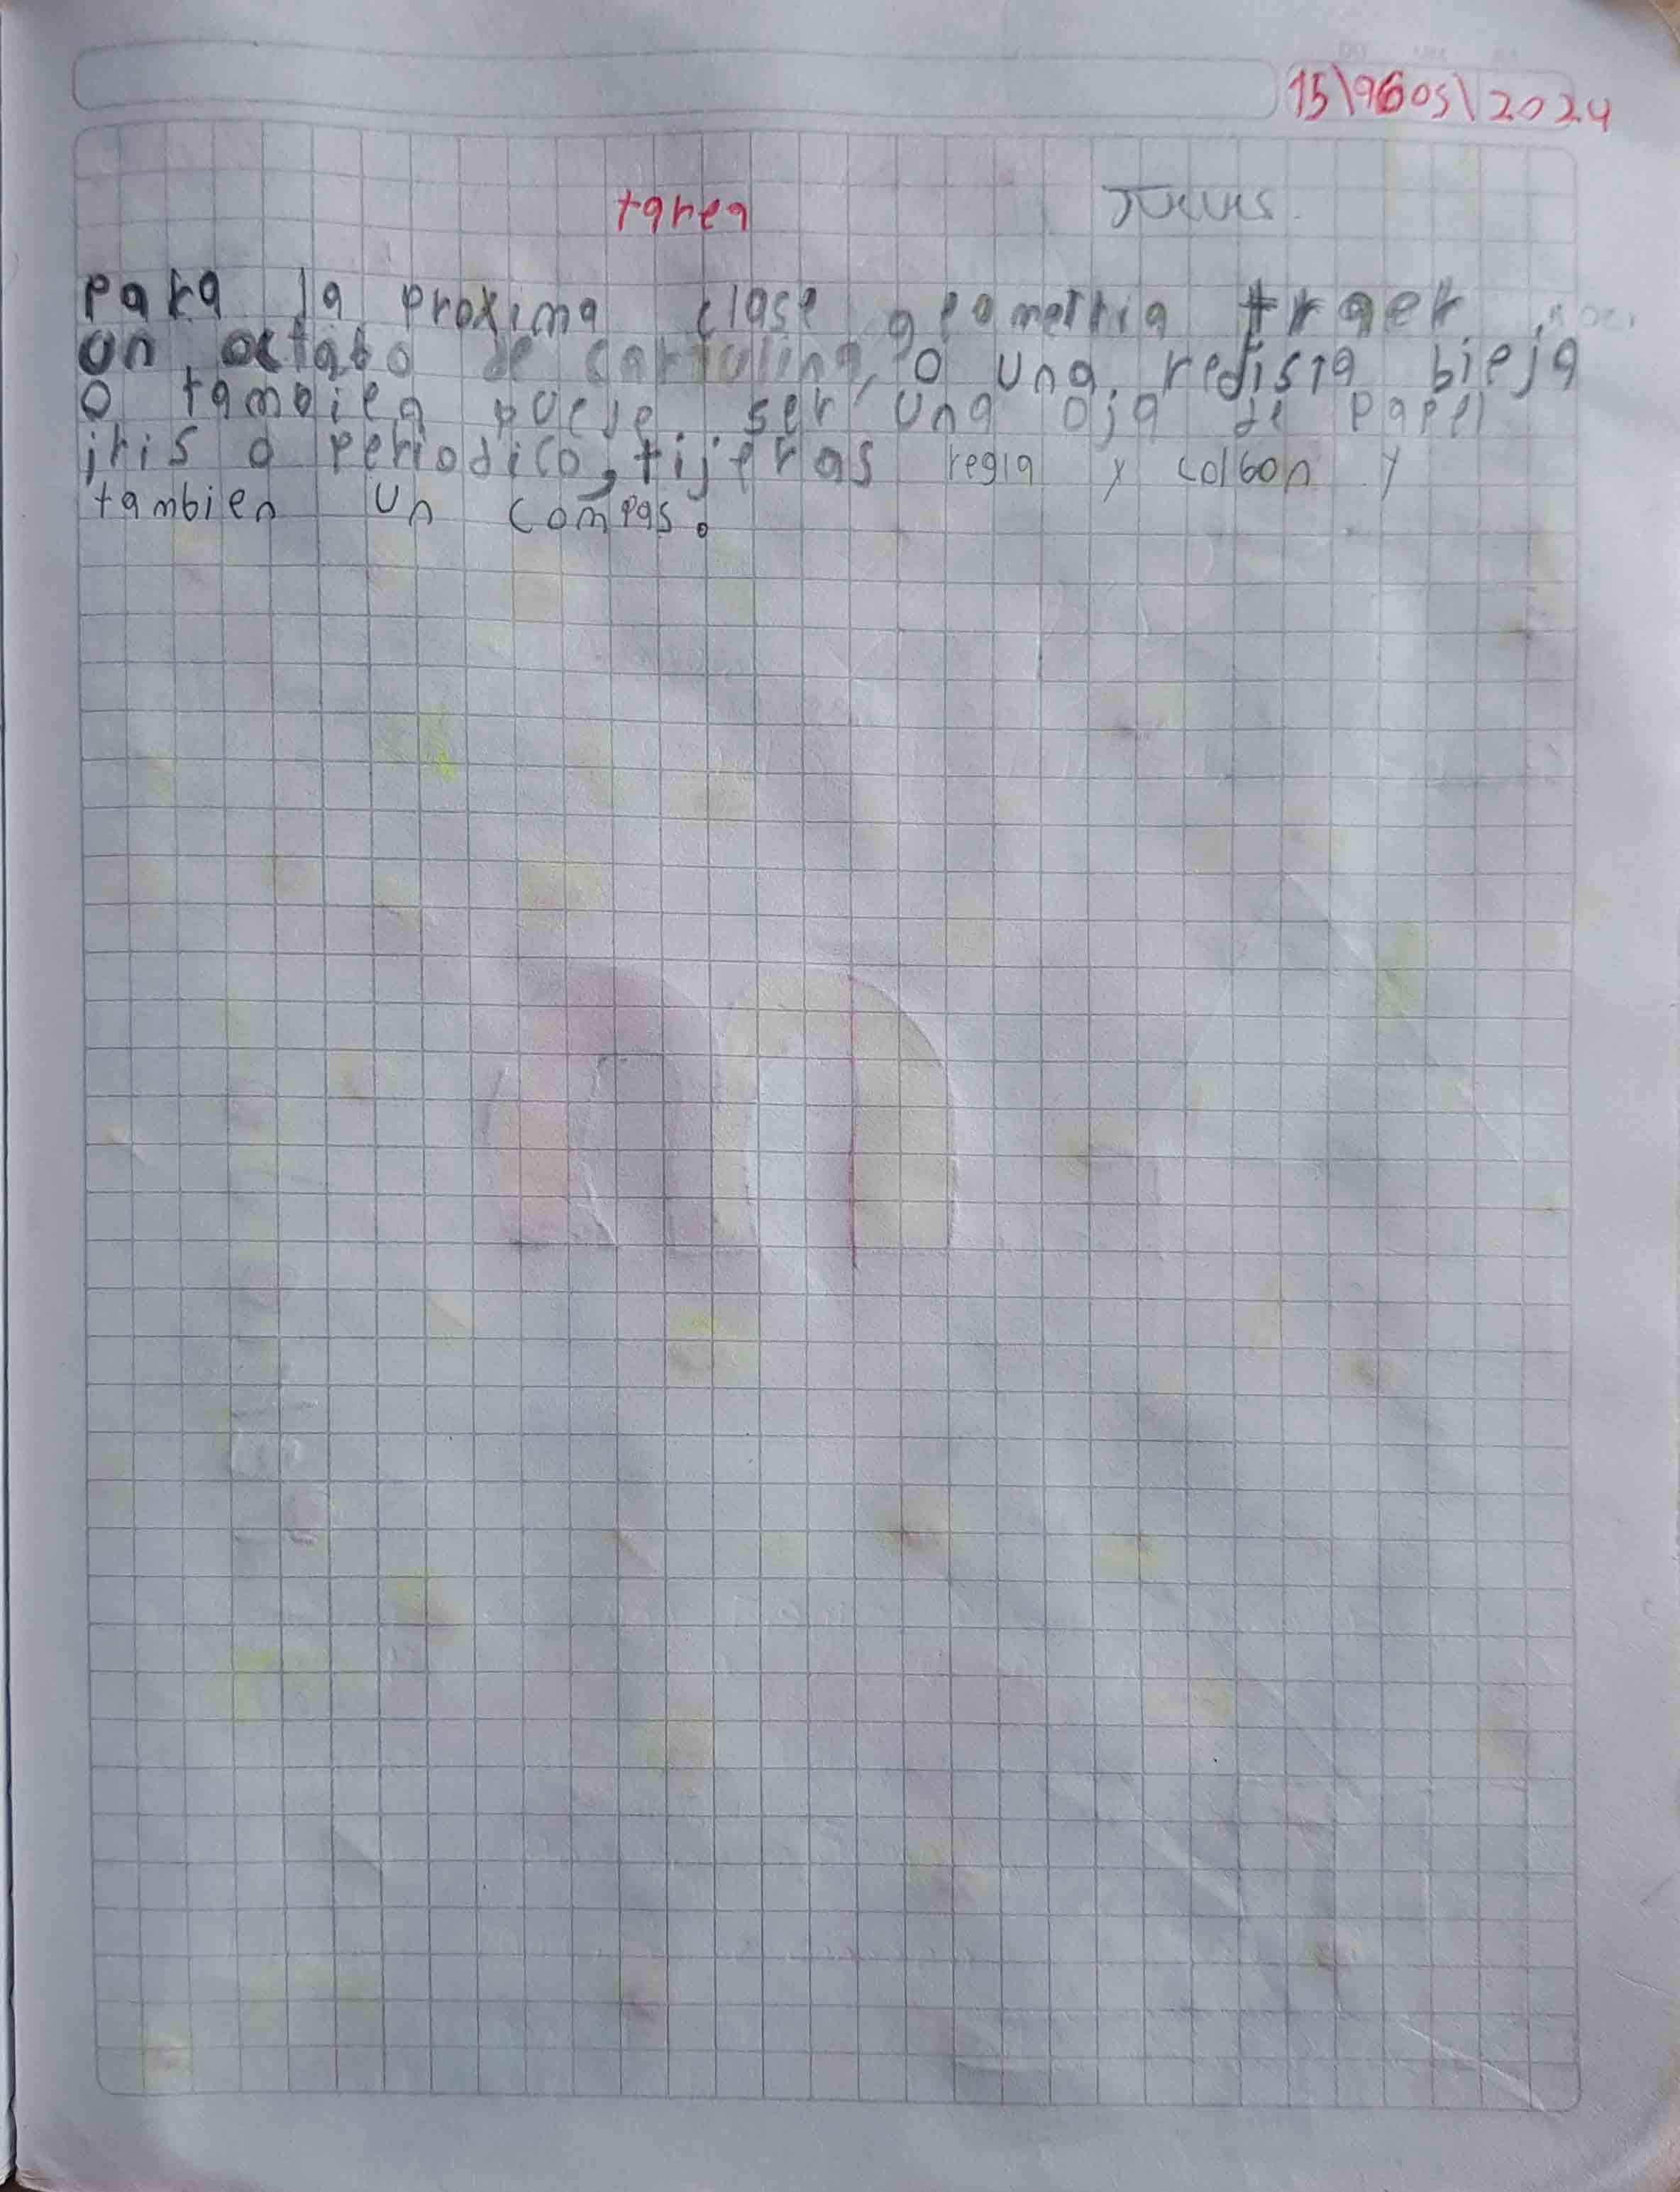 15\agos\2024
tarea Jueves.
para la proxima clase geometria traer
un octabo de cartulina, o una redista bieja
o tambien puede ser una oja de papel
iris o periodico, tijeras regla y colbon y
tambien un compas.